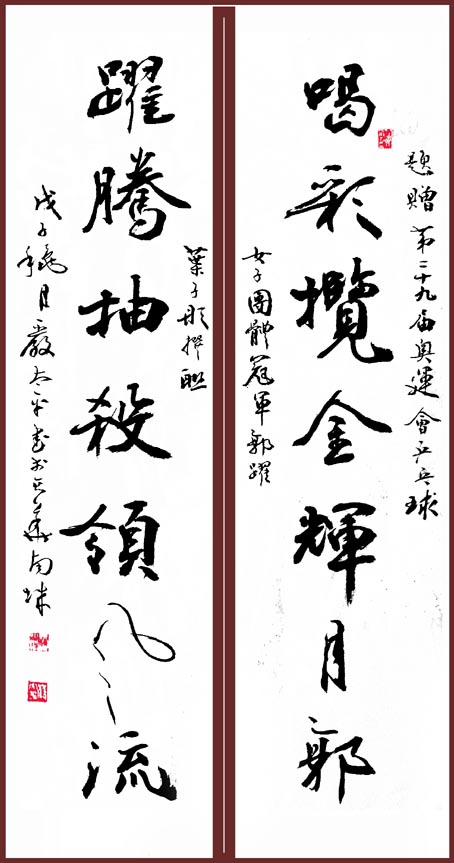 題贈第二十九届奥運會乒乓球
喝彩攬金輝月郭
女子團體冠軍郭躍
葉子彤撰聯
躍騰抽殺領風流
戊子穐月嚴太平書於京華南城